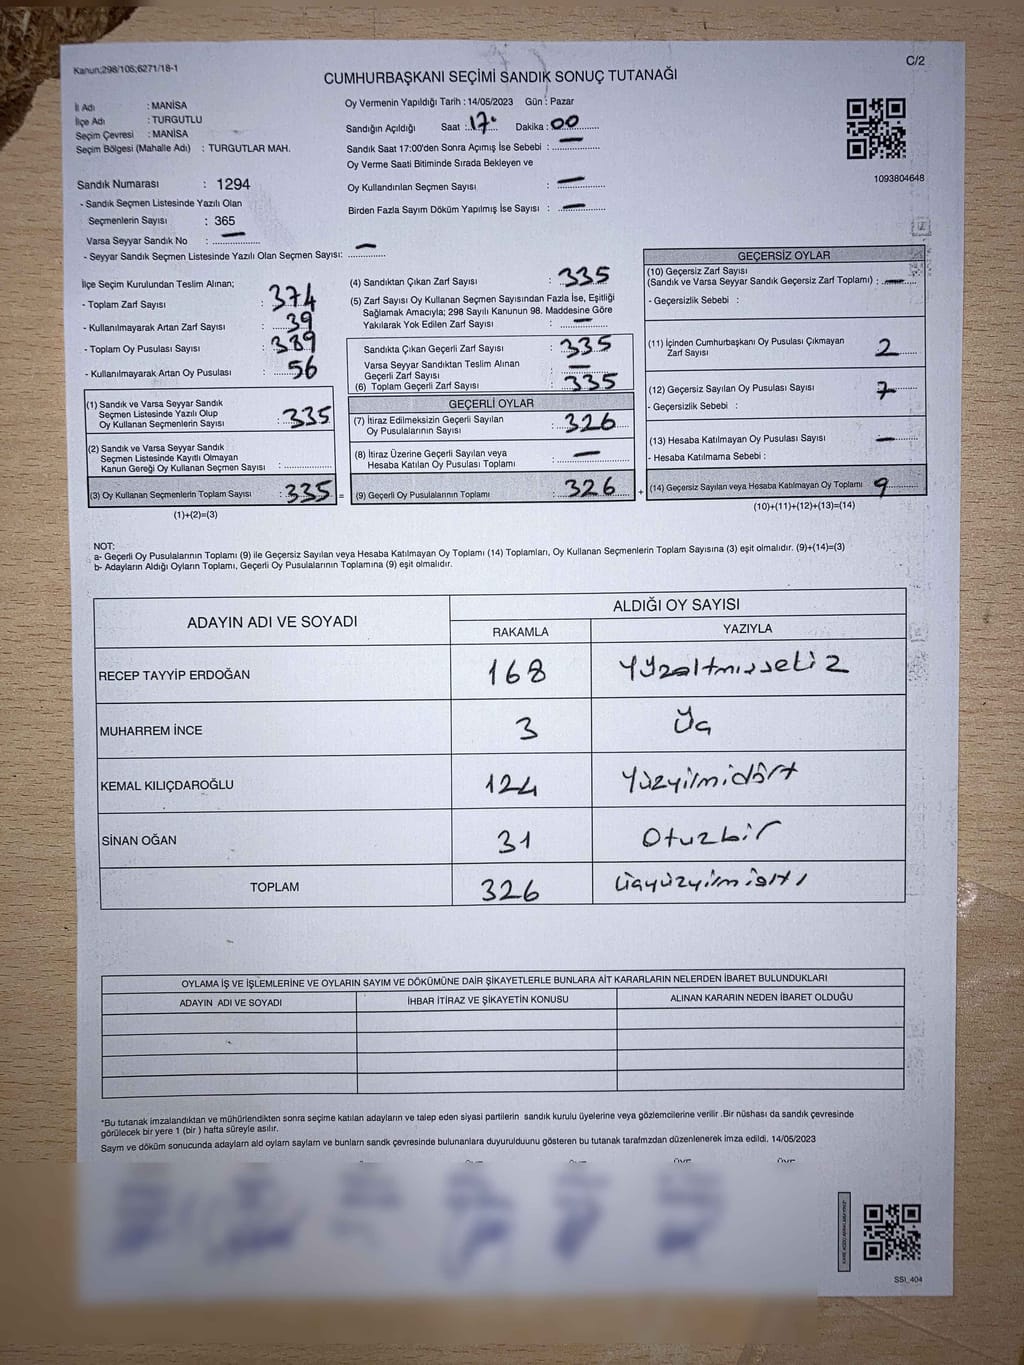 Kanun;298/105;6271/18-1
C/2
CUMHURBAŞKANI SEÇİMİ SANDIK SONUÇ TUTANAĞI
İl Adı : MANİSA
İlçe Adı : TURGUTLU
Seçim Çevresi : MANİSA
Seçim Bölgesi (Mahalle Adı) : TURGUTLAR MAH.
Sandık Numarası : 1294
- Sandık Seçmen Listesinde Yazılı Olan
Seçmenlerin Sayısı : 365
Varsa Seyyar Sandık No : —
- Seyyar Sandık Seçmen Listesinde Yazılı Olan Seçmen Sayısı: —
Oy Vermenin Yapıldığı Tarih : 14/05/2023 Gün : Pazar
Sandığın Açıldığı Saat : 17 Dakika : 00
Sandık Saat 17:00'den Sonra Açımış İse Sebebi : —
Oy Verme Saati Bitiminde Sırada Bekleyen ve
Oy Kullandırılan Seçmen Sayısı : —
Birden Fazla Sayım Döküm Yapılmış İse Sayısı : —
1093804648
İlçe Seçim Kurulundan Teslim Alınan;
- Toplam Zarf Sayısı : 374
- Kullanılmayarak Artan Zarf Sayısı : 39
- Toplam Oy Pusulası Sayısı : 389
- Kullanılmayarak Artan Oy Pusulası : 56
(1) Sandık ve Varsa Seyyar Sandık
Seçmen Listesinde Yazılı Olup
Oy Kullanan Seçmenlerin Sayısı : 335
(2) Sandık ve Varsa Seyyar Sandık
Seçmen Listesinde Kayıtlı Olmayan
Kanun Gereği Oy Kullanan Seçmen Sayısı :
(3) Oy Kullanan Seçmenlerin Toplam Sayısı : 335 =
(1)+(2)=(3)
(4) Sandıktan Çıkan Zarf Sayısı : 335
(5) Zarf Sayısı Oy Kullanan Seçmen Sayısından Fazla İse, Eşitliği
Sağlamak Amacıyla; 298 Sayılı Kanunun 98. Maddesine Göre
Yakılarak Yok Edilen Zarf Sayısı : —
Sandıkta Çıkan Geçerli Zarf Sayısı : 335
Varsa Seyyar Sandıktan Teslim Alınan
Geçerli Zarf Sayısı : —
(6) Toplam Geçerli Zarf Sayısı : 335
GEÇERLİ OYLAR
(7) İtiraz Edilmeksizin Geçerli Sayılan
Oy Pusulalarının Sayısı : 326
(8) İtiraz Üzerine Geçerli Sayılan veya
Hesaba Katılan Oy Pusulası Toplamı : —
(9) Geçerli Oy Pusulalarının Toplamı : 326 +
GEÇERSİZ OYLAR
(10) Geçersiz Zarf Sayısı
(Sandık ve Varsa Seyyar Sandık Geçersiz Zarf Toplamı) : —
- Geçersizlik Sebebi :
(11) İçinden Cumhurbaşkanı Oy Pusulası Çıkmayan
Zarf Sayısı 2
(12) Geçersiz Sayılan Oy Pusulası Sayısı 7
- Geçersizlik Sebebi :
(13) Hesaba Katılmayan Oy Pusulası Sayısı —
- Hesaba Katılmama Sebebi :
(14) Geçersiz Sayılan veya Hesaba Katılmayan Oy Toplamı 9
(10)+(11)+(12)+(13)=(14)
NOT:
a- Geçerli Oy Pusulalarının Toplamı (9) ile Geçersiz Sayılan veya Hesaba Katılmayan Oy Toplamı (14) Toplamları, Oy Kullanan Seçmenlerin Toplam Sayısına (3) eşit olmalıdır. (9)+(14)=(3)
b- Adayların Aldığı Oyların Toplamı, Geçerli Oy Pusulalarının Toplamına (9) eşit olmalıdır.
ADAYIN ADI VE SOYADI ALDIĞI OY SAYISI
RAKAMLA YAZIYLA
RECEP TAYYİP ERDOĞAN 168 Yüzaltmışsekiz
MUHARREM İNCE 3 Üç
KEMAL KILIÇDAROĞLU 124 Yüzyirmidört
SİNAN OĞAN 31 Otuzbir
TOPLAM 326 Üçyüzyirmialtı
OYLAMA İŞ VE İŞLEMLERİNE VE OYLARIN SAYIM VE DÖKÜMÜNE DAİR ŞİKAYETLERLE BUNLARA AİT KARARLARIN NELERDEN İBARET BULUNDUKLARI
ADAYIN ADI VE SOYADI İHBAR İTİRAZ VE ŞİKAYETİN KONUSU ALINAN KARARIN NEDEN İBARET OLDUĞU
*Bu tutanak imzalandıktan ve mühürlendikten sonra seçime katılan adayların ve talep eden siyasi partilerin sandık kurulu üyelerine veya gözlemcilerine verilir .Bir nüshası da sandık çevresinde
görülecek bir yere 1 (bir ) hafta süreyle asılır.
Saym ve döküm sonucunda adaylarn ald oylarn saylarn ve bunlarn sandk çevresinde bulunanlara duyurulduunu gösteren bu tutanak tarafmzdan düzenlenerek imza edildi. 14/05/2023
SSI_404